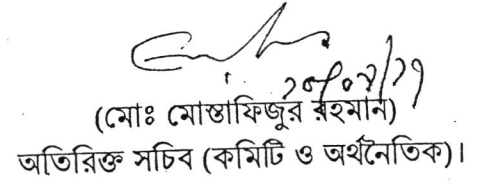 (মোঃ মোস্তাফিজুর রহমান)
অতিরিক্ত সচিব (কমিটি ও অর্থনৈতিক)।